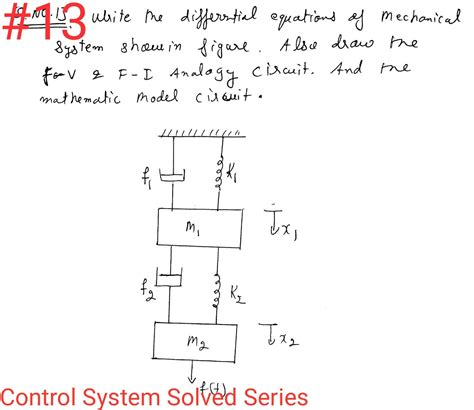 #13
Q.NO.13. Write the differntial equations of Mechanical
System shown in figure. Also draw the
F-V & F-I Analogy Circuit. And the
mathematic Model circuit.
f1 K1
M1 x1
f2 K2
M2 x2
f(t)
Control System Solved Series